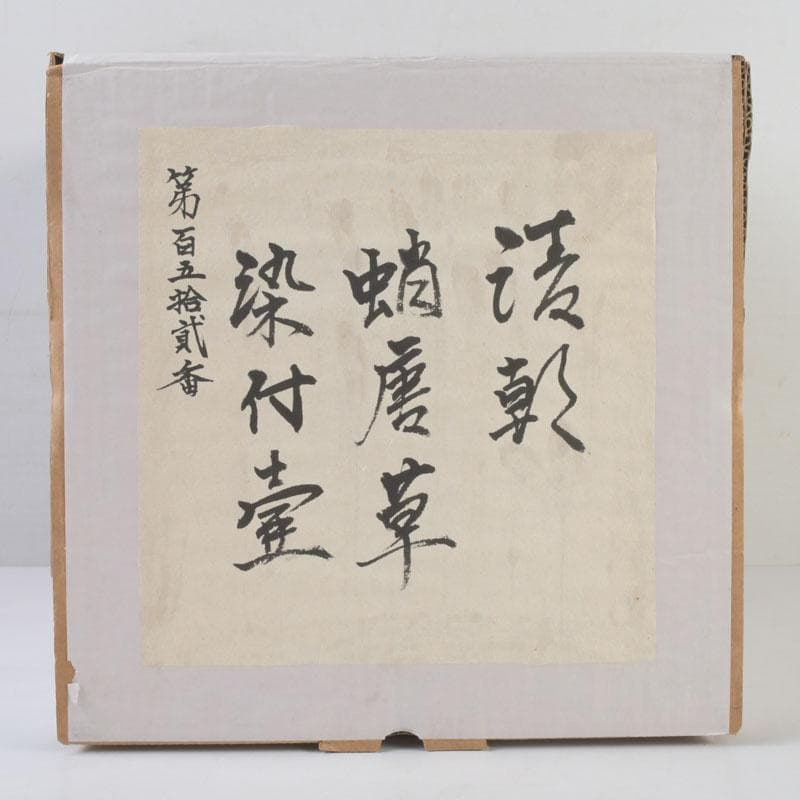 清朝
蛸唐草
染付壷
第百五拾貳番